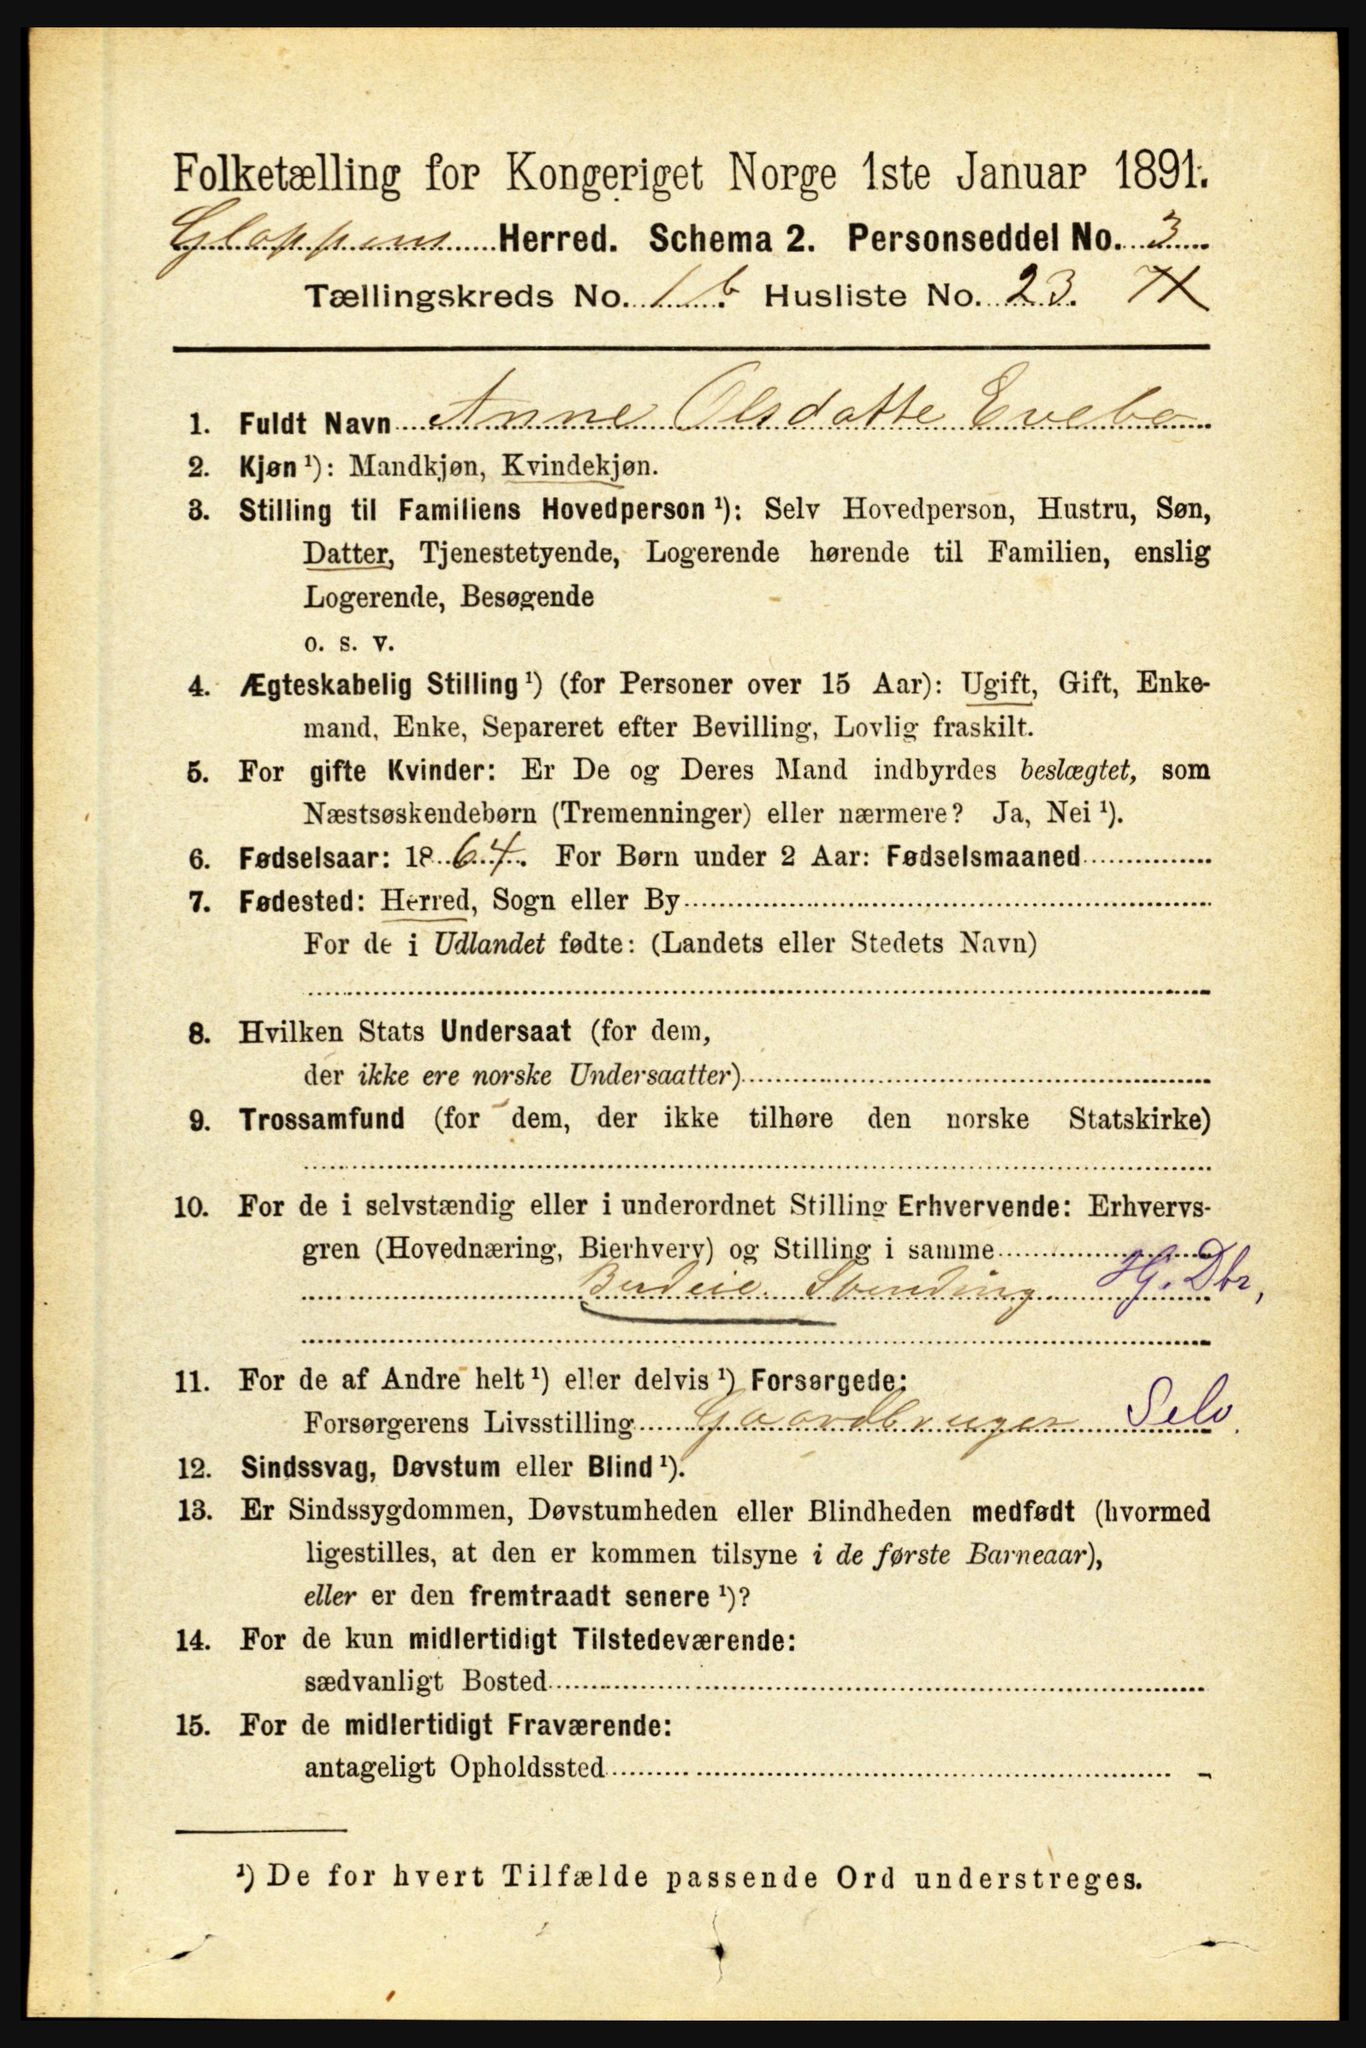 Folketælling for Kongeriget Norge 1ste Januar 1891.
Gloppens Herred. Schema 2. Personseddel No. 3
Tællingskreds No. 1 b Husliste No. 23.
1. Fuldt Navn Anne Olsdatte Evebø
2. Kjøn ¹): Mandkjøn, Kvindekjøn.
3. Stilling til Familiens Hovedperson ¹): Selv Hovedperson, Hustru, Søn,
Datter, Tjenestetyende, Logerende hørende til Familien, enslig
Logerende, Besøgende
o. s. v.
4. Ægteskabelig Stilling ¹) (for Personer over 15 Aar): Ugift, Gift, Enke-
mand, Enke, Separeret efter Bevilling, Lovlig fraskilt.
5. For gifte Kvinder: Er De og Deres Mand indbyrdes beslægtet, som
Næstsøskendebørn (Tremenninger) eller nærmere? Ja, Nei ¹).
6. Fødselsaar: 18 64. For Børn under 2 Aar: Fødselsmaaned
7. Fødested: Herred, Sogn eller By
For de i Udlandet fødte: (Landets eller Stedets Navn)
8. Hvilken Stats Undersaat (for dem,
der ikke ere norske Undersaatter)
9. Trossamfund (for dem, der ikke tilhøre den norske Statskirke)
10. For de i selvstændig eller i underordnet Stilling Erhvervende: Erhvervs-
gren (Hovednæring, Bierhverv) og Stilling i samme
Hj. Dtr,
11. For de af Andre helt ¹) eller delvis ¹) Forsørgede:
Forsørgerens Livsstilling Gaardbruger Selv.
12. Sindssvag, Døvstum eller Blind ¹).
13. Er Sindssygdommen, Døvstumheden eller Blindheden medfødt (hvormed
ligestilles, at den er kommen tilsyne i de første Barneaar),
eller er den fremtraadt senere ¹)?
14. For de kun midlertidigt Tilstedeværende:
sædvanligt Bosted
15. For de midlertidigt Fraværende:
antageligt Opholdssted
¹) De for hvert Tilfælde passende Ord understreges.